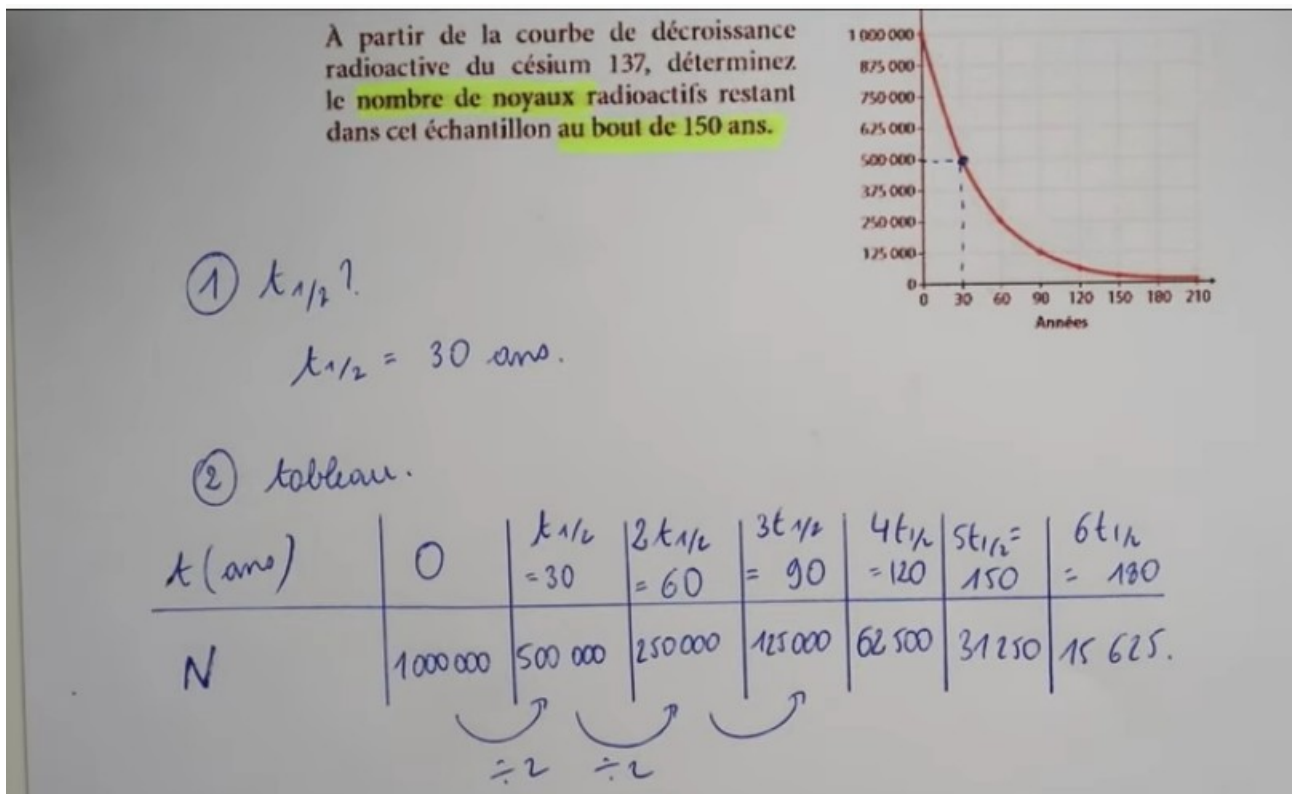 À partir de la courbe de décroissance
radioactive du césium 137, déterminez
le nombre de noyaux radioactifs restant
dans cet échantillon au bout de 150 ans.
1 000 000
875 000
750 000
625 000
500 000
375 000
250 000
125 000
0
0 30 60 90 120 150 180 210
Années
① t1/2 ?
t1/2 = 30 ans.
② tableau.
t (ans) 0 t1/2 = 30 2t1/2 = 60 3t1/2 = 90 4t1/2 = 120 5t1/2 = 150 6t1/2 = 180
N 1 000 000 500 000 250 000 125 000 62 500 31 250 15 625.
÷2 ÷2